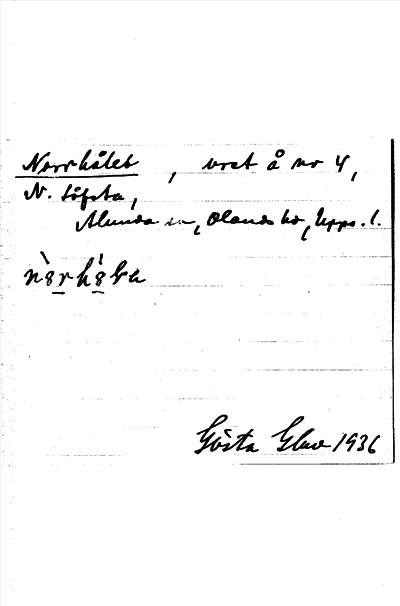 Norrhålet, vret å no 4,
N. Löfsta,
Alunda sn, Olands hd, Upps. l.
Gösta Glav 1936